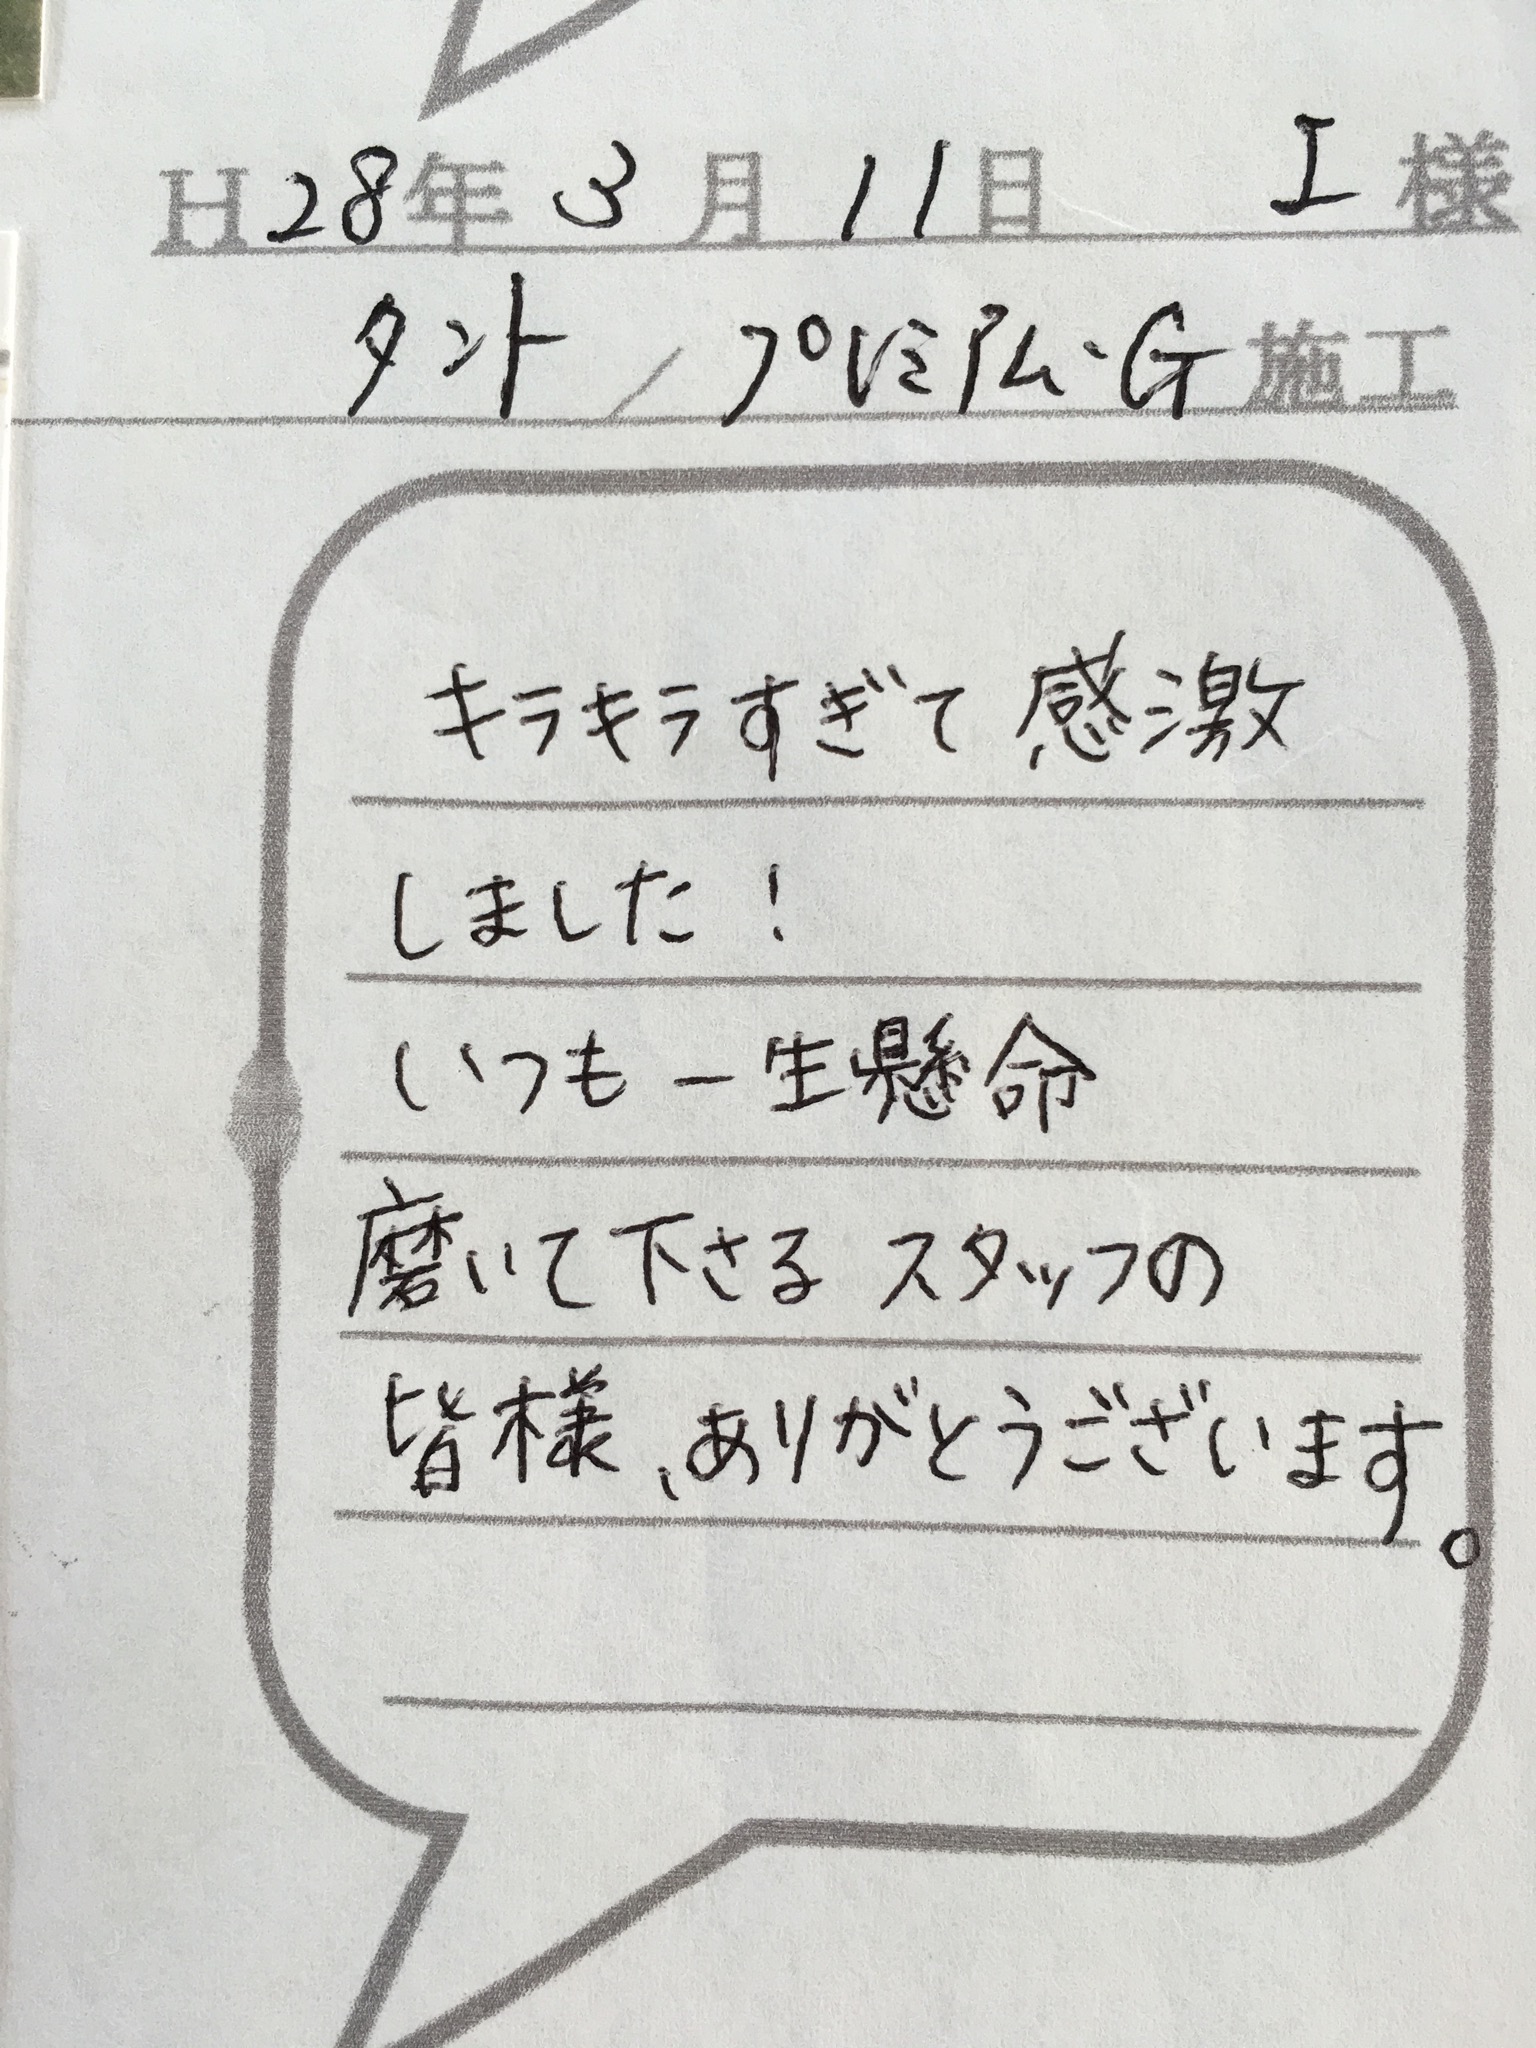 H28年3月11日 I様
タント/プレミアム・G施工
キラキラすぎて感激
しました!
いつも一生懸命
磨いて下さるスタッフの
皆様、ありがとうございます。